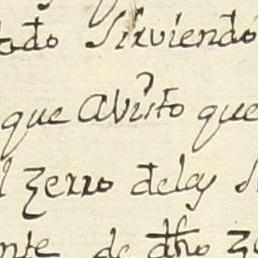 tado Sirviendo
que a visto que
l zerro deley
nte de dho